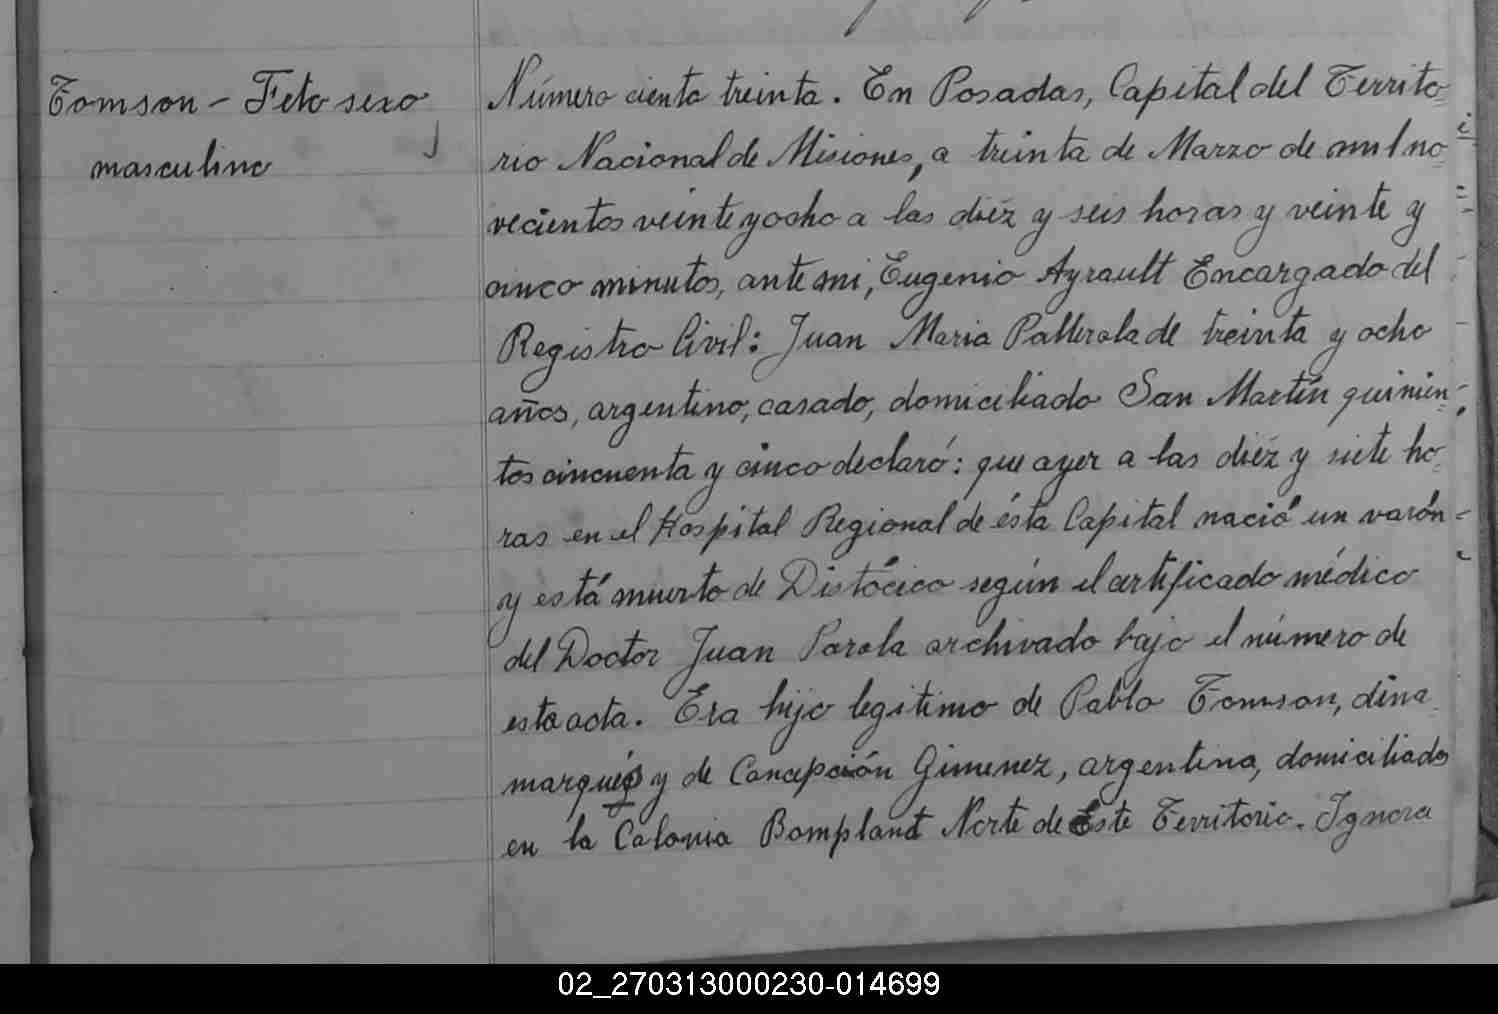 Tomson - Feto sexo
masculino
Número ciento treinta. En Posadas, Capital del Territo-
rio Nacional de Misiones, a treinta de Marzo de mil no-
vecientos veinte y ocho a las diéz y seis horas y veinte y
cinco minutos, ante mi, Eugenio Ayrault Encargado del
Registro Civil: Juan Maria Pallerola de treinta y ocho
años, argentino, casado, domiciliado San Martín quinien-
tos cincuenta y cinco declaró: que ayer a las diéz y siete ho-
ras en el Hospital Regional de ésta Capital nació un varón
y está muerto de Distócico según el certificado médico
del Doctor Juan Parola archivado bajo el número de
esta acta. Era hijo legitimo de Pablo Tomson, dina-
marqués y de Concepción Gimenez, argentina, domiciliados
en la Colonia Bompland Norte de Este Territorio. Ignora
02_270313000230-014699